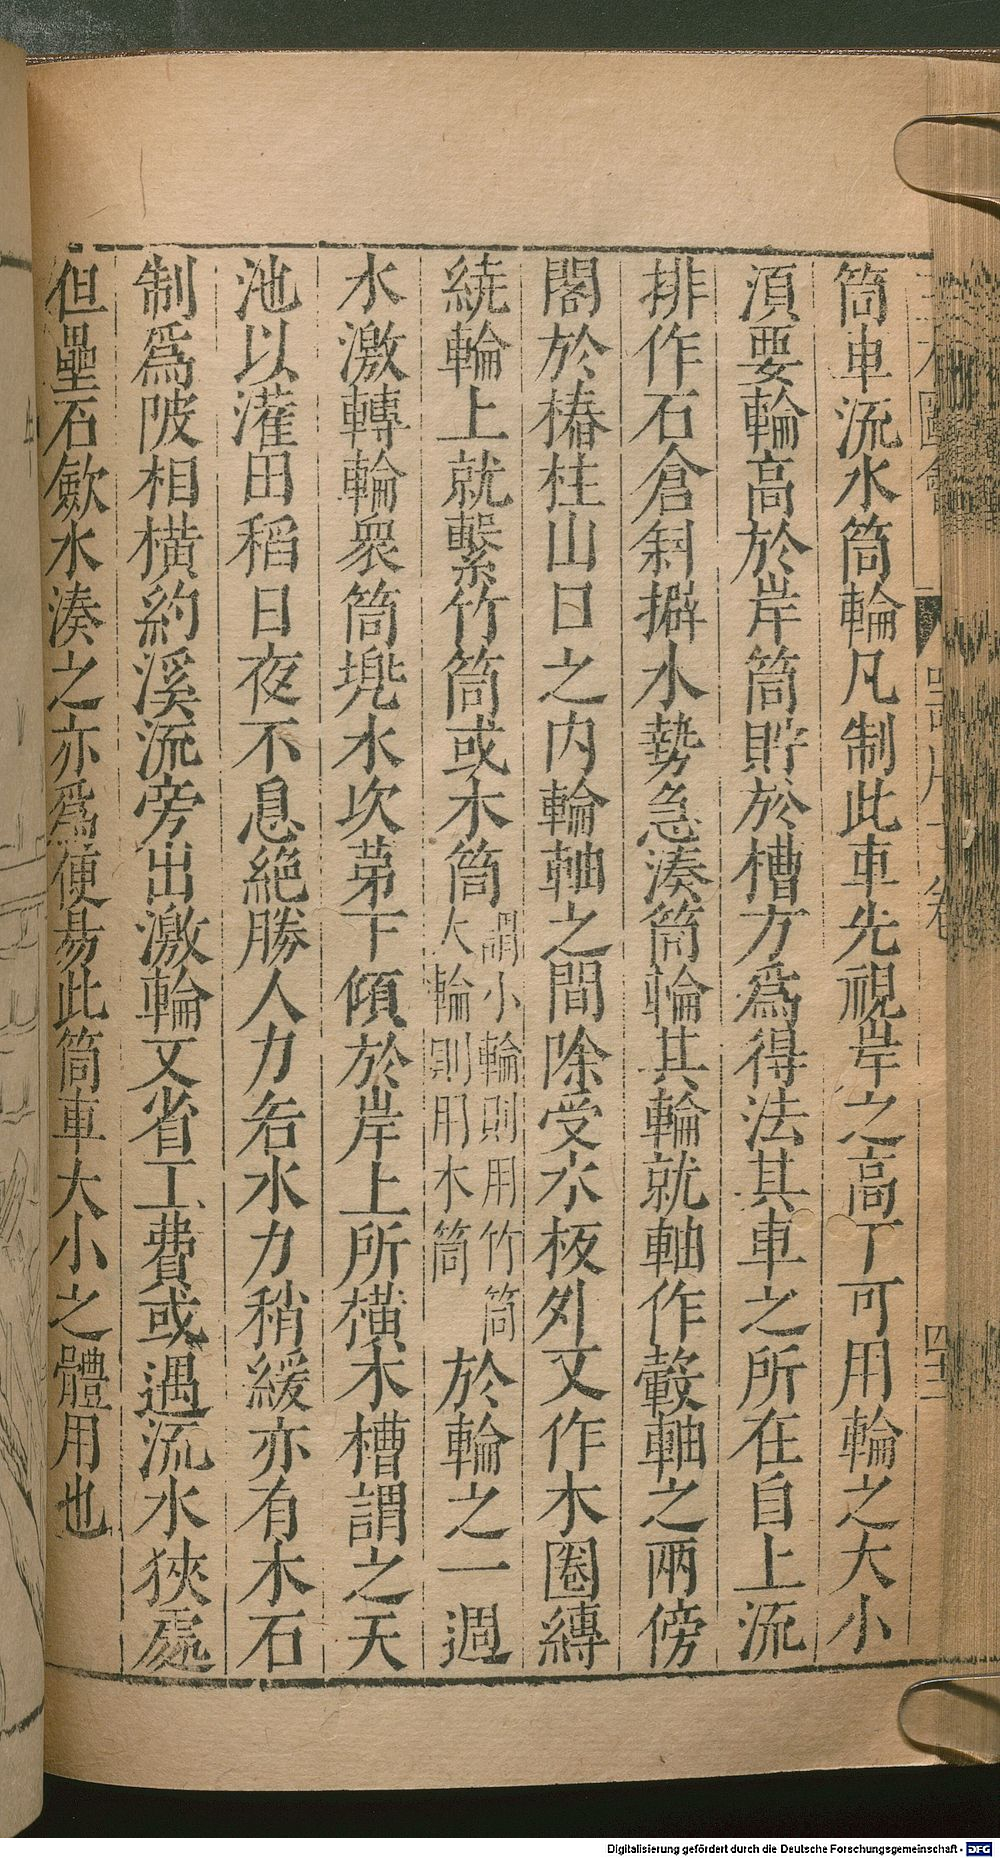 筒車流水筒輪凡制此車先視岸之高丁可用輪之大小
須要輪高於岸筒貯於槽方爲得法其車之所在自上流
排作石倉斜擗水勢急湊筒輪其輪就軸作轂軸之兩傍
閣於樁柱山口之内輪軸之間除受水板外又作木圈縳
繞輪上就繫竹筒或木筒謂小輪則用竹筒大輪則用木筒於輪之一週
水激轉輪衆筒兠水次第下傾於岸上所橫木槽謂之天
池以灌田稻日夜不息絶勝人力若水力稍緩亦有木石
制爲陂柵橫約溪流旁出激輪又省工費或遇流水狹處
但壘石歛水湊之亦爲便易此筒車大小之體用也
圖會
四十二
Digitalisierung gefördert durch die Deutsche Forschungsgemeinschaft - DFG